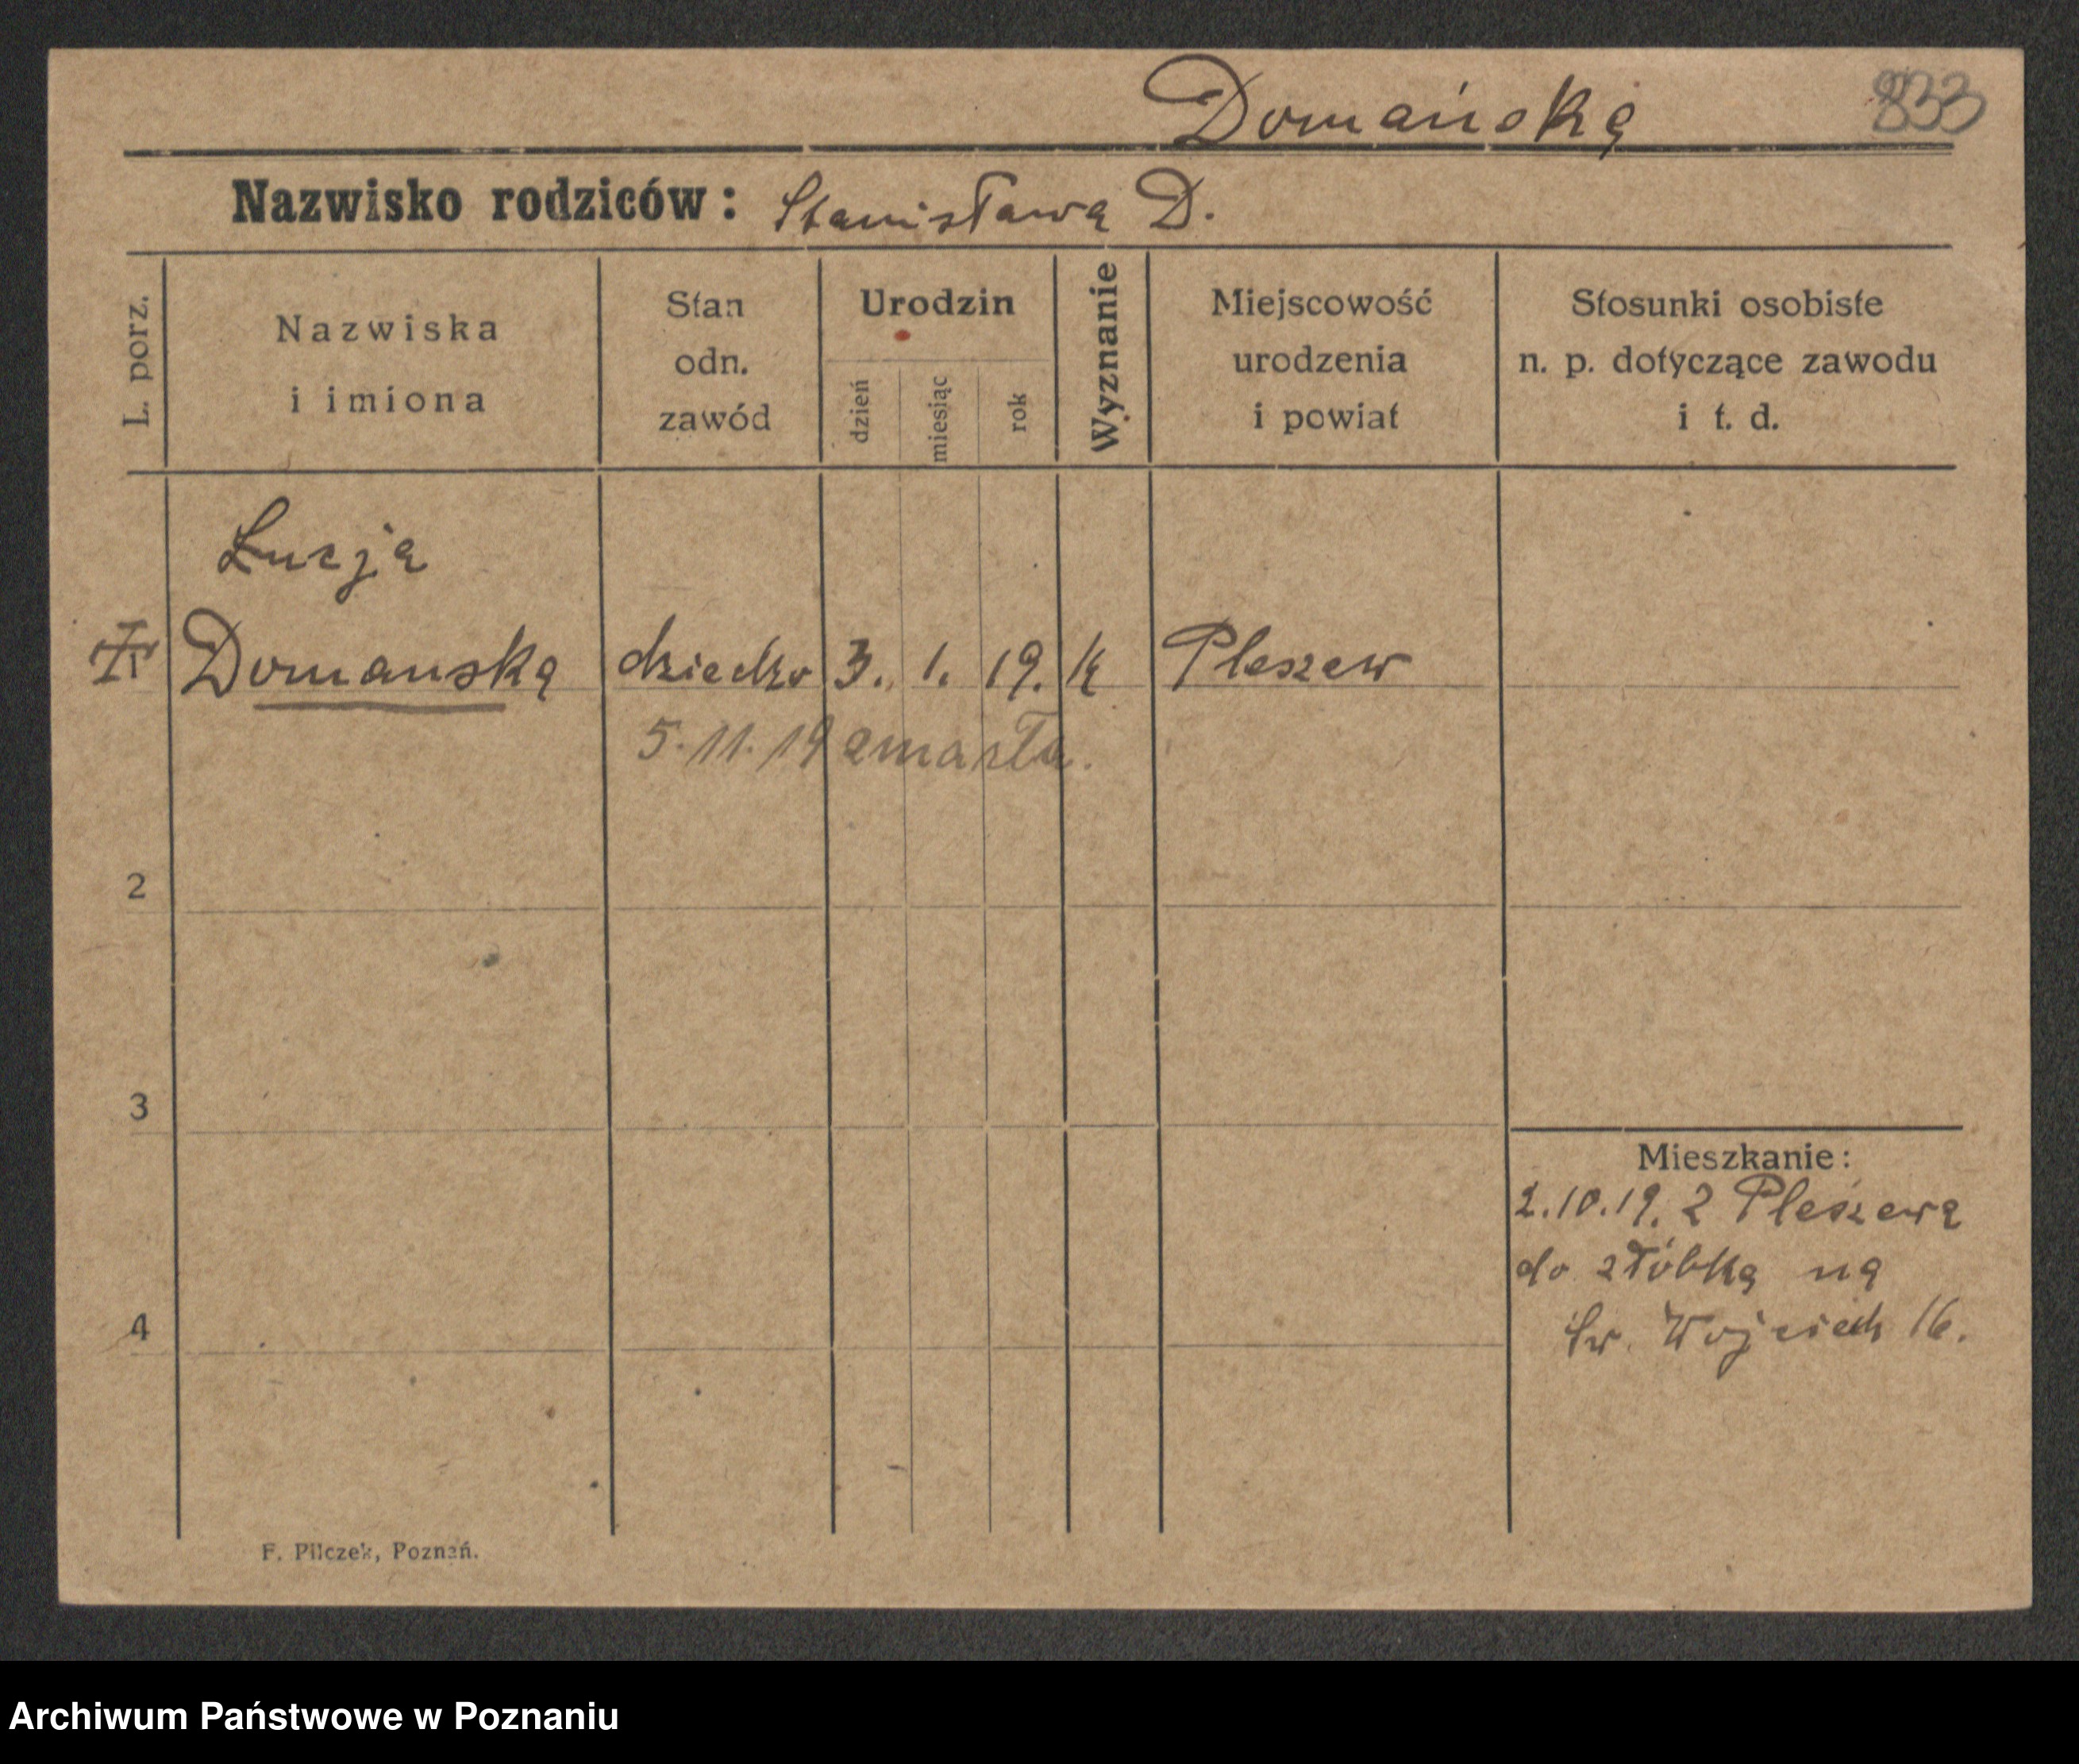 Domańska 833
Nazwisko rodziców: Stanisława D.
L. porz.
Nazwiska
i imiona
Stan
odn.
zawód
Urodzin
dzień
miesiąc
rok
Wyznanie
Miejscowość
urodzenia
i powiat
Stosunki osobiste
n. p. dotyczące zawodu
i t. d.
Łucja
Domanska dziecko 3. 1. 19. k Pleszew
5.11.19 zmarła.
2
3
Mieszkanie:
2.10.19. z Pleszewa
do żłóbka na
4
św. Wojciech 16.
F. Pilczek, Poznań.
Archiwum Państwowe w Poznaniu